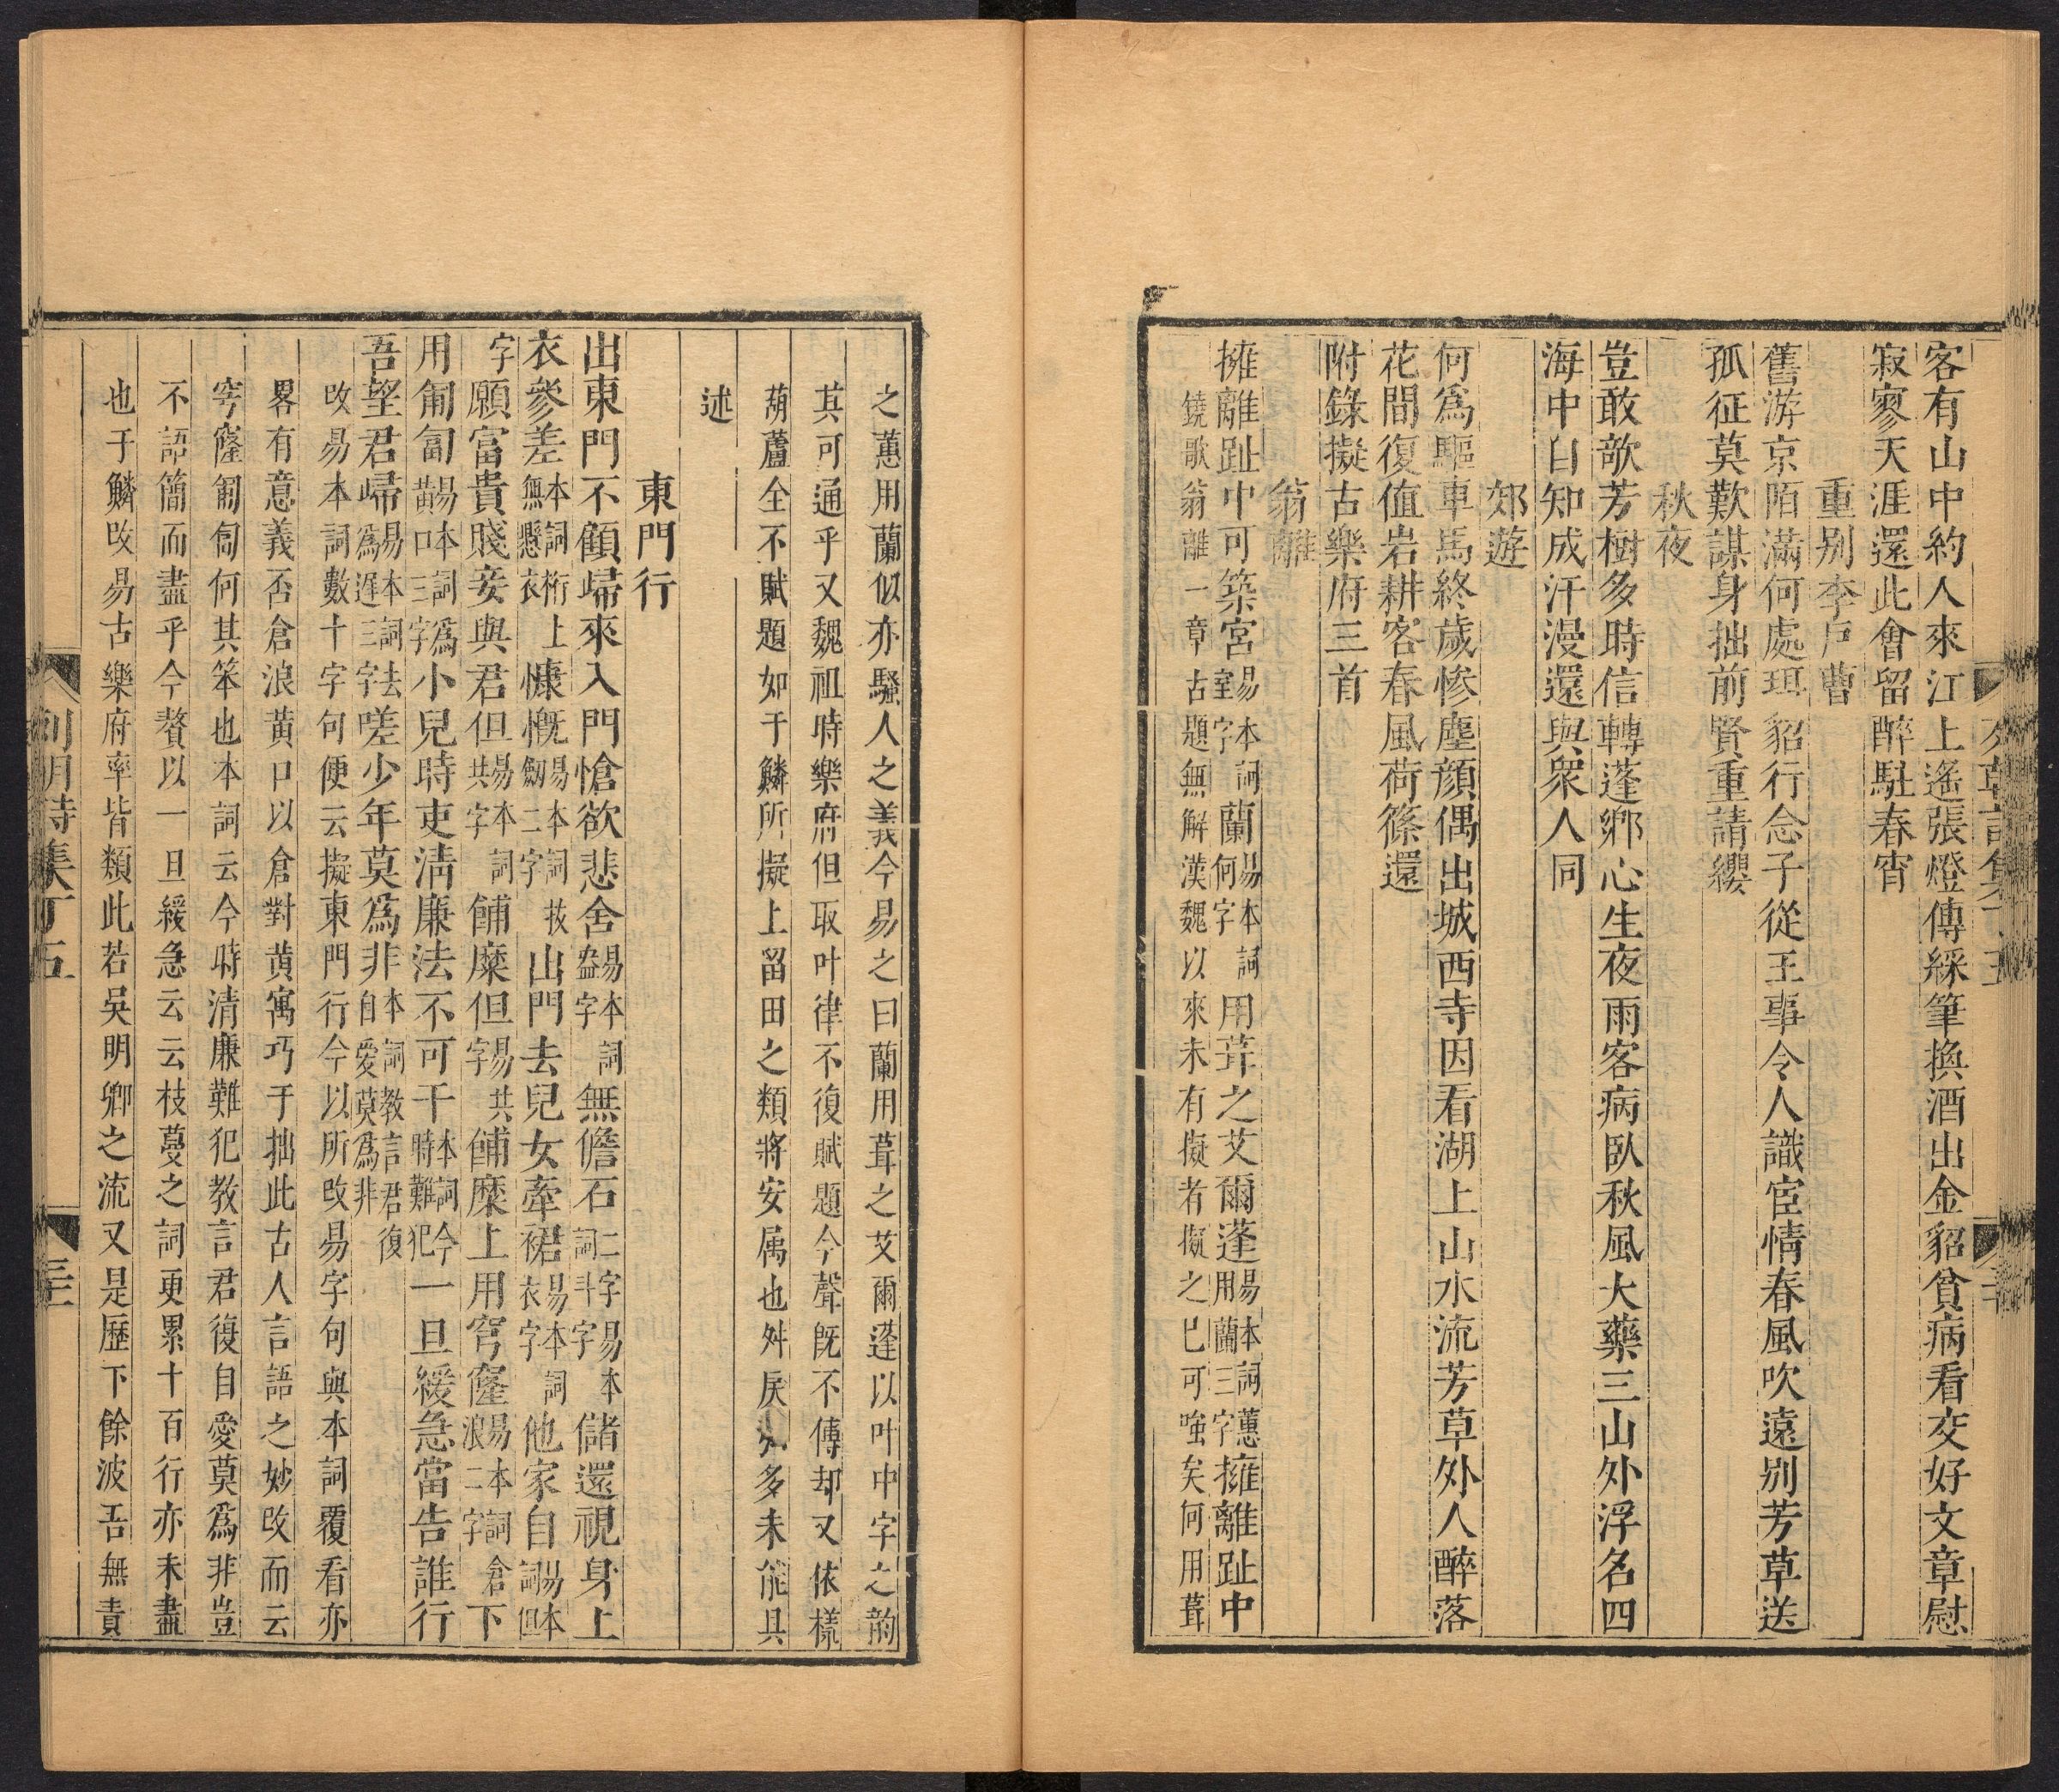 客有山中約人來江上遙張燈傳綵筆換酒出金貂貧病看交好文章慰
寂寥天涯還此會留醉駐春宵
重別李戶曹
舊游京陌滿何處珥貂行念子從王事令人識宦情春風吹遠別芳草送
孤征莫歎謀身拙前賢重請纓
秋夜
豈敢歌芳樹多時信轉蓬鄉心生夜雨客病臥秋風大藥三山外浮名四
海中自知成汗漫還與衆人同
郊遊
何爲驅車馬終歲慘塵顏偶出城西寺因看湖上山水流芳草外人醉落
花間復值岩耕客春風荷篠還
附錄擬古樂府三首
翁離
擁離趾中可築宮易本詞室字蘭易本詞何字用茸之艾爾蓬易本詞蕙用蘭三字擁離趾中
鐃歌翁離一章古題無解漢魏以來未有擬者擬之已可嗤矣何用葺
之蕙用蘭似亦騷人之義今易之曰蘭用茸之艾爾蓬以叶中字之韵
其可通乎又魏祖時樂府但取叶律不復賦題今聲旣不傳却又依樣
葫蘆全不賦題如于鱗所擬上留田之類將安属也舛戾多未能具
述
東門行
出東門不顧歸來入門愴欲悲舍易本詞盎字無儋石二字易本詞斗字儲還視身上
衣參差本詞桁上無懸衣慷慨易本詞拔劒二字出門去兒女牽裾易本詞衣字他家自易本詞但
字願富貴賤妾與君但易本詞共字餔糜但易共字餔糜上用穹窿易本詞倉浪二字下
用匍匐易本詞爲黄口三字小兒時吏淸廉法不可干本詞今時難犯一旦緩急當告誰行
吾望君歸易本詞法爲遲三字嗟少年莫爲非本詞教言君復自愛莫爲非
改易本詞數十字句便云擬東門行今以所改易字句與本詞覆看亦
畧有意義否倉浪黄口以倉對黄寓巧于拙此古人言語之妙改而云
穹窿匍匐何其笨也本詞云今時淸廉難犯教言君復自愛莫爲非豈
不語簡而盡乎今贅以一旦緩急云云枝蔓之詞更累十百行亦未盡
也于鱗改易古樂府率皆類此若吳明卿之流又是歷下餘波吾無責
列朝詩集丁五